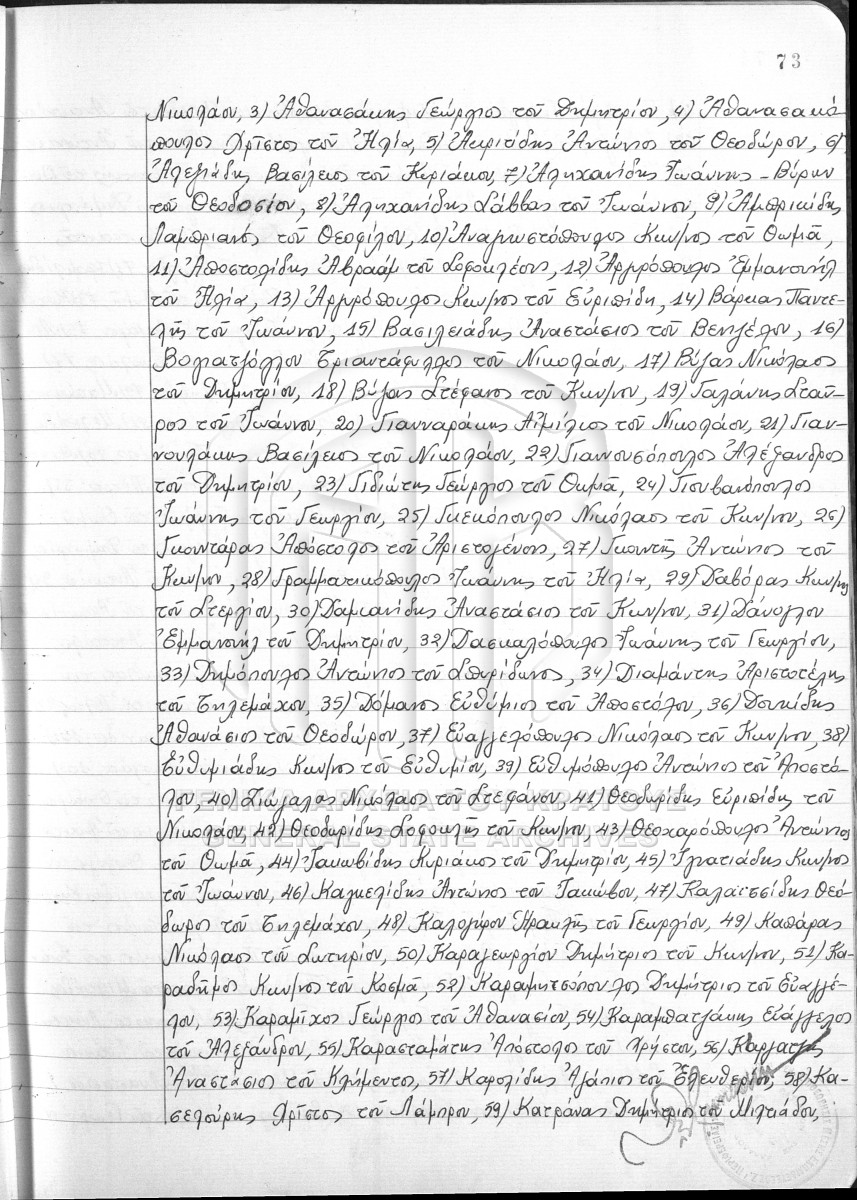 73
Νικολάου, 3) Ἀθανασάκης Γεώργιος τοῦ Δημητρίου, 4) Ἀθανασακό-
πουλος Χρῖστος τοῦ Ἠλία, 5) Ἀκριτίδης Ἀντώνιος τοῦ Θεοδώρου, 6)
Ἀλεξιάδης Βασίλειος τοῦ Κυριάκου, 7) Ἀληχανίδης Ἰωάννης - Βύρων
τοῦ Θεοδοσίου, 8) Ἀληχανίδης Σάββας τοῦ Ἰωάννου, 9) Ἀμπρικίδης
Λαμπριανός τοῦ Θεοφίλου, 10) Ἀναγνωστόπουλος Κων/νος τοῦ Θωμᾶ,
11) Ἀποστολίδης Ἀβραάμ τοῦ Σοφοκλέους, 12) Ἀργυρόπουλος Ἐμμανουήλ
τοῦ Ἠλία, 13) Ἀργυρόπουλος Κων/νος τοῦ Εὐριπίδη, 14) Βάρκας Παντε-
λῆς τοῦ Ἰωάννου, 15) Βασιλειάδης Ἀναστάσιος τοῦ Βενιζέλου, 16)
Βολιατζόγλου Τριαντάφυλλος τοῦ Νικολάου, 17) Βύζας Νικόλαος
τοῦ Δημητρίου, 18) Βύζας Στέφανος τοῦ Κων/νου, 19) Γαλάνης Σταῦ-
ρος τοῦ Ἰωάννου, 20) Γιανναράκης Αἰμίλιος τοῦ Νικολάου, 21) Γιαν-
νουλάκης Βασίλειος τοῦ Νικολάου, 22) Γιαννουσόπουλος Ἀλέξανδρος
τοῦ Δημητρίου, 23) Γιδιώτης Γεώργιος τοῦ Θωμᾶ, 24) Γιουβανόπουλος
Ἰωάννης τοῦ Γεωργίου, 25) Γκεκόπουλος Νικόλαος τοῦ Κων/νου, 26)
Γκουντάρας Ἀπόστολος τοῦ Ἀριστογένους, 27) Γκουντῆς Ἀντώνιος τοῦ
Κων/νου, 28) Γραμματικόπουλος Ἰωάννης τοῦ Ἠλία, 29) Δαβόρας Κων/νος
τοῦ Στεργίου, 30) Δαμιανίδης Ἀναστάσιος τοῦ Κων/νου, 31) Δάνογλου
Ἐμμανουήλ τοῦ Δημητρίου, 32) Δασκαλόπουλος Ἰωάννης τοῦ Γεωργίου,
33) Δημόπουλος Ἀντώνιος τοῦ Σπυρίδωνος, 34) Διαμάντης Ἀριστοτέλης
τοῦ Τηλεμάχου, 35) Δόμανος Εὐθύμιος τοῦ Ἀποστόλου, 36) Δουκίδης
Ἀθανάσιος τοῦ Θεοδώρου, 37) Εὐαγγελόπουλος Νικόλαος τοῦ Κων/νου, 38)
Εὐθυμιάδης Κων/νος τοῦ Εὐθυμίου, 39) Εὐθυμόπουλος Ἀντώνιος τοῦ Ἀποστό-
λου, 40) Ζιώγαλας Νικόλαος τοῦ Στεφάνου, 41) Θεοδωρίδης Εὐριπίδης τοῦ
Νικολάου, 42) Θεοδωρίδης Σοφοκλῆς τοῦ Κων/νου, 43) Θεοχαρόπουλος Ἀντώνιος
τοῦ Θωμᾶ, 44) Ἰακωβίδης Κυριάκος τοῦ Δημητρίου, 45) Ἰγνατιάδης Κων/νος
τοῦ Ἰωάννου, 46) Καγκελίδης Ἀντώνιος τοῦ Ἰακώβου, 47) Καλαϊτσίδης Θεό-
δωρος τοῦ Τηλεμάχου, 48) Καλογήρου Ἡρακλῆς τοῦ Γεωργίου, 49) Καπάρας
Νικόλαος τοῦ Σωτηρίου, 50) Καραγεωργίου Δημήτριος τοῦ Κων/νου, 51) Κα-
ραδῆμος Κων/νος τοῦ Κοσμᾶ, 52) Καραμητσόπουλος Δημήτριος τοῦ Εὐαγγέ-
λου, 53) Καραμίχος Γεώργιος τοῦ Ἀθανασίου, 54) Καραμπατζάκης Εὐάγγελος
τοῦ Ἀλεξάνδρου, 55) Καρασταμάτης Ἀπόστολος τοῦ Χρήστου, 56) Καργατζῆς
Ἀναστάσιος τοῦ Κλήμεντος, 57) Καρολίδης Ἀγάπιος τοῦ Ἐλευθερίου, 58) Κα-
σελούρης Χρῖστος τοῦ Λάμπρου, 59) Κατράνας Δημήτριος τοῦ Μιλτιάδου,
ΓΕΝΙΚΑ ΑΡΧΕΙΑ ΤΟΥ ΚΡΑΤΟΥΣ
GENERAL STATE ARCHIVES